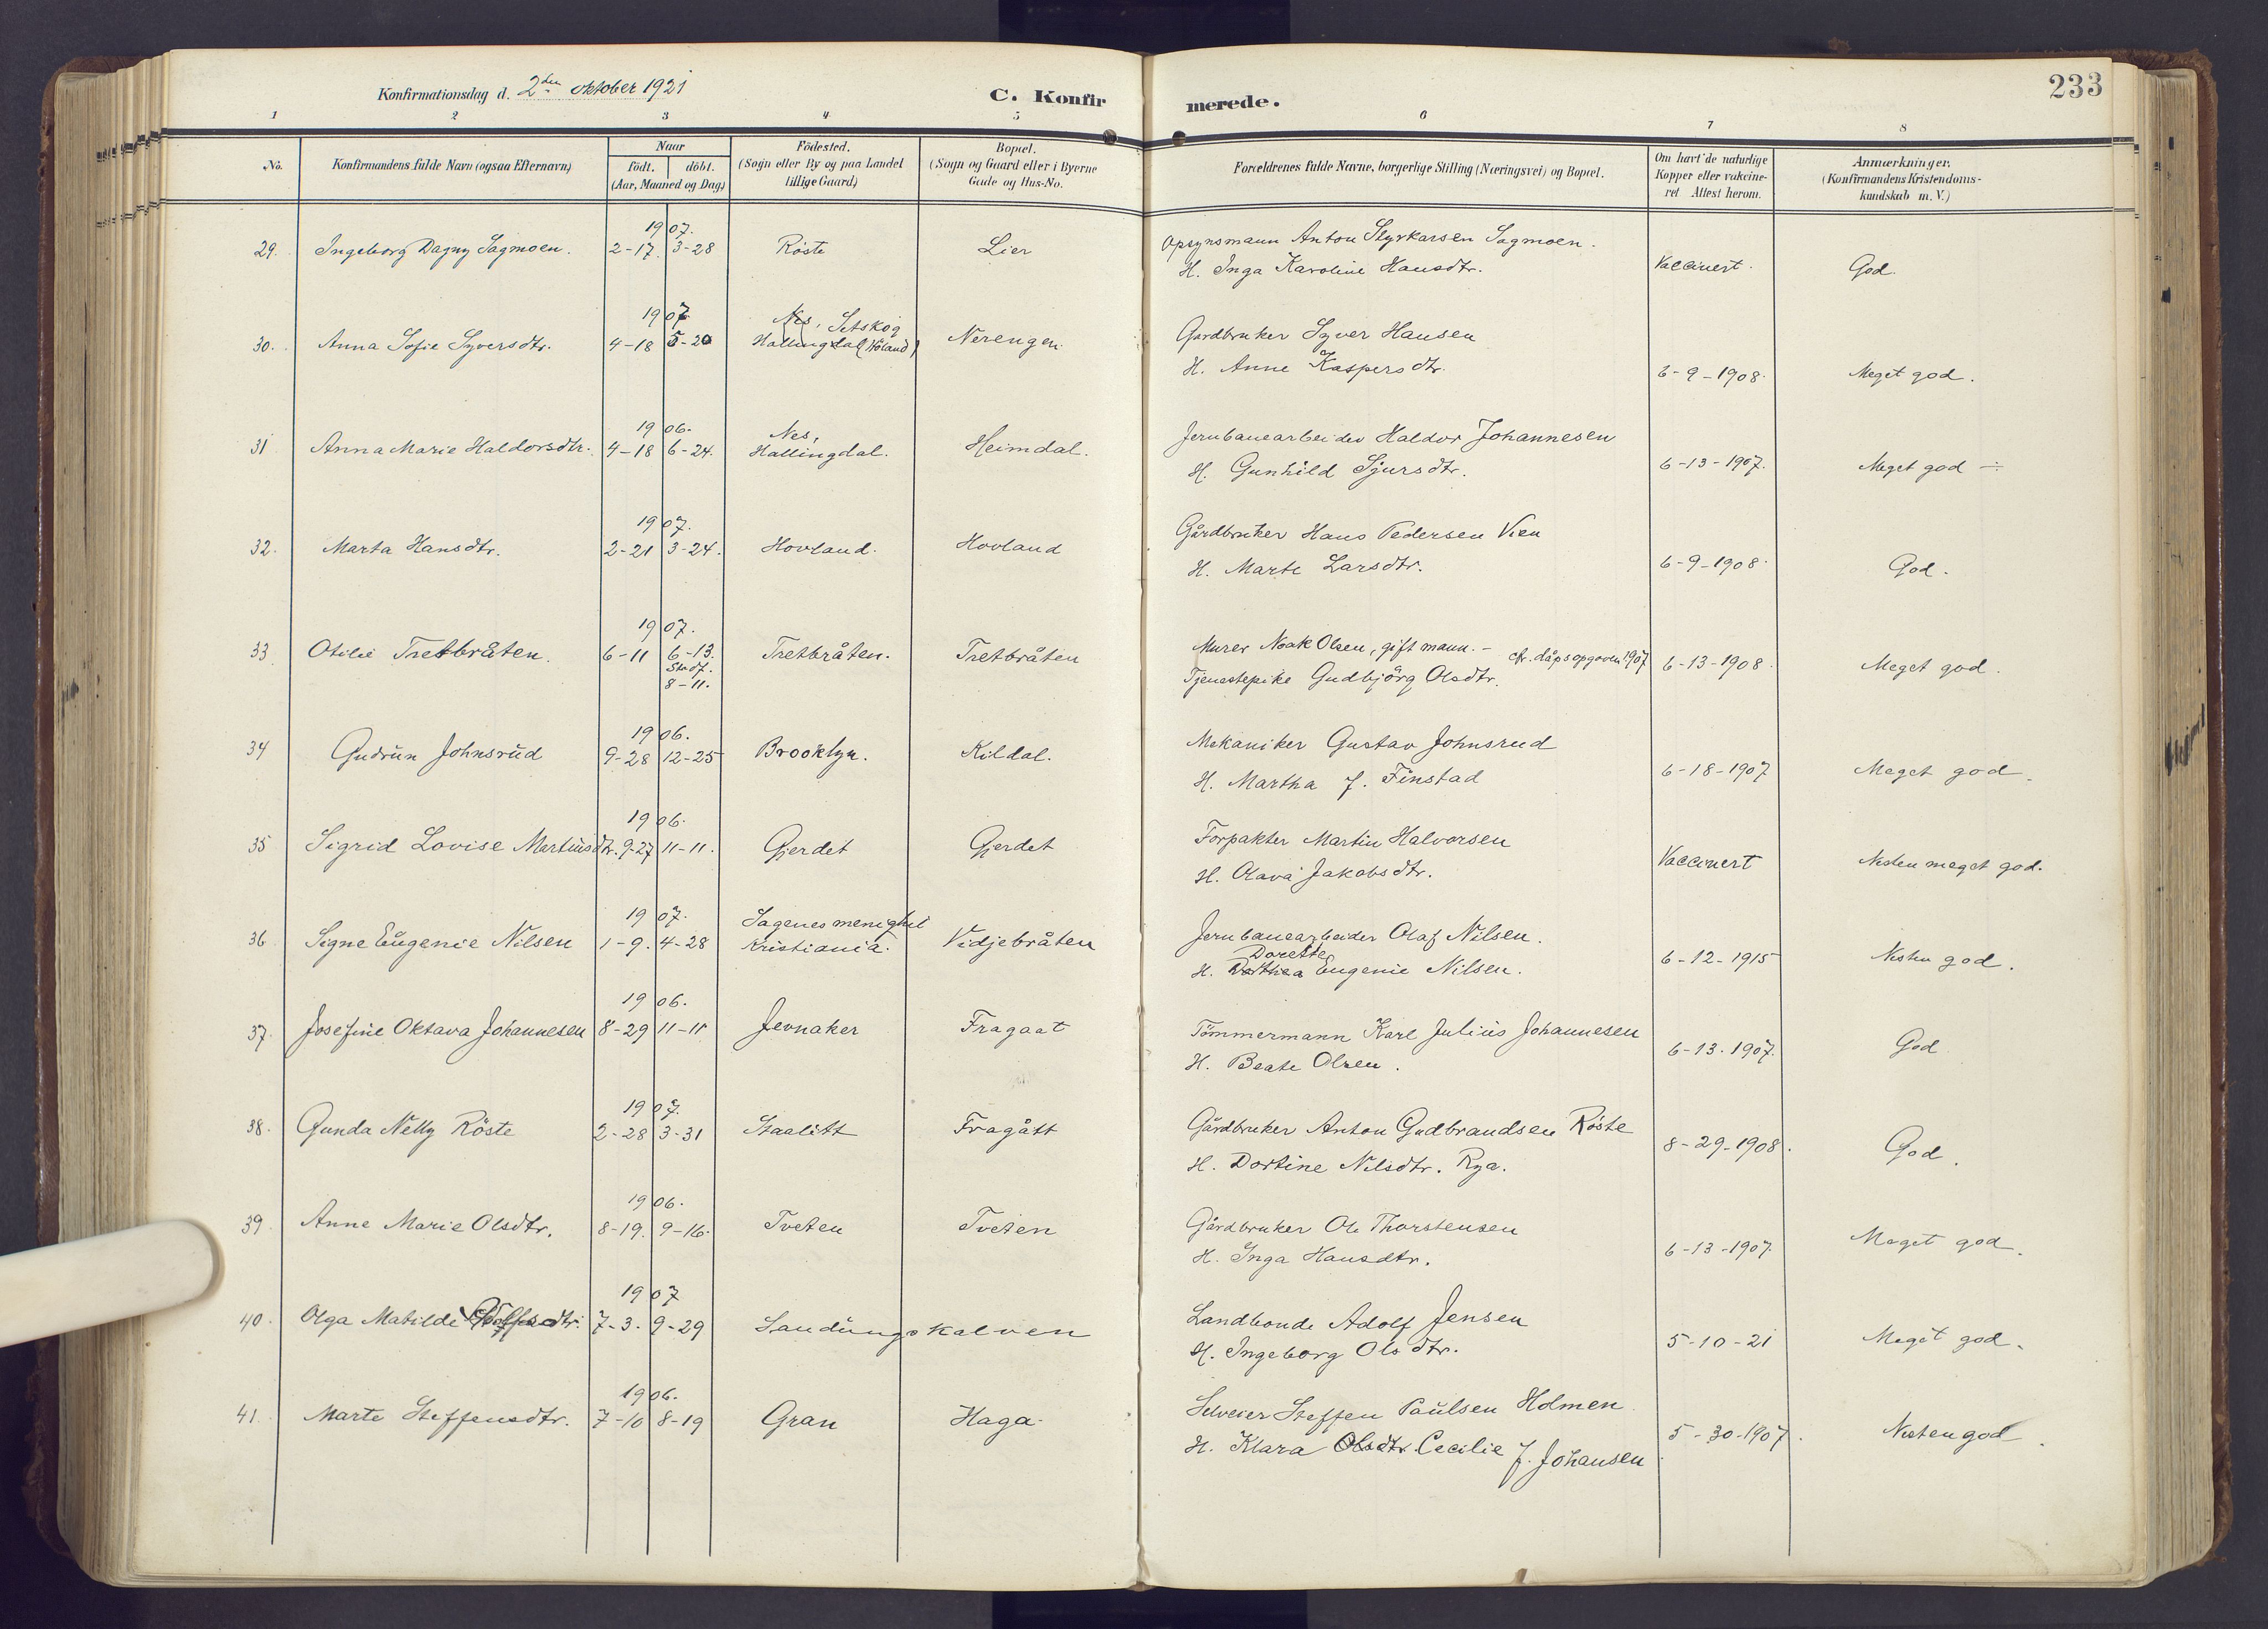 Konfirmationsdag d. 2den oktober 1921
C. Konfirmerede.
233
1 2 3 4 5 6 7 8
No.
Konfirmandens fulde Navn (ogsaa Efternavn)
Naar
födt. döbt.
(Aar, Maaned og Dag)
Födested.
(Sogn eller By og paa Landet
tillige Gaard)
Bopæl.
(Sogn og Gaard eller i Byerne
Gade og Hus-No.
Forældrenes fulde Navne, borgerlige Stilling (Næringsvei) og Bopæl.
Om havt de naturlige
Kopper eller vakcine-
ret Attest herom.
Anmærkninger.
(Konfirmandens Kristendoms-
kundskab m. V.)
1907.
29. Ingeborg Dagny Sagmoen. 2-17. 3-28 Röste Lier
Opsynsmann Anton Styrkarsen Sagmoen.
H. Inga Karoline Hansdtr. Vaccinert. God.
1907
30. Anna Sofie Syversdtr. 4-18 5-20 Nes, Setskog
Hallingdal (Höland) Nerengen
Gardbruker Syver Hansen
H. Anne Kaspersdtr. 6-9-1908. Meget god.
1906.
31 Anna Marie Haldorsdtr. 4-18 6-24. Nes,
Hallingdal. Heimdal.
Jernbanearbeider Haldor Johannesen
H. Gunhild Sjursdtr. 6-13-1907. Meget god ÷
1907.
32. Marta Hansdtr. 2-21 3-24. Hovland. Hovland
Gårdbruker Hans Pedersen Vien
H. Marte Larsdtr. 6-9-1908. God.
1907.
33 Otilie Tretbråten. 6-11 6-13.
Stadf.
8-11. Tretbråten. Tretbråten
Murer Noak Olsen, gift mann. - cfr. dåpsopgaven 1907
Tjenestepike Gudbjörg Olsdtr. 6-13-1908. Meget god.
1906.
34 Gudrun Johnsrud 9-28 12-25 Brooklyn. Kildal.
Mekaniker Gustav Johnsrud
H. Martha J. Finstad 6-18-1907 Meget god.
1906.
35 Sigrid Lovise Martinsdtr. 9-27 11-11. Gjerdet Gjerdet
Forpakter Martin Halvorsen
H. Olava Jakobsdtr. Vaccinert Nesten meget god.
1907.
36 Signe Eugenie Nilsen 1-9. 4-28 Sagenes menighet
Kristiania. Vidjebråten
Jernbanearbeider Olaf Nilsen.
Dorette
H. Dorthea Eugenie Nilsen. 6-12-1915 Nesten god.
1906.
37. Josefine Oktava Johannesen 8-29 11-11 Jevnaker Fragaat
Tömmermann Karl Julius Johannesen
H. Beate Olsen. 6-13-1907. God
1907.
38. Gunda Nelly Röste 2-28 3-31 Staalitt Fragått
Gårdbruker Anton Gudbrandsen Röste
H. Dortine Nilsdtr. Rya. 8-29-1908. God.
1906.
39. Anne Marie Olsdtr. 8-19. 9-16. Tveten Tveten
Gårdbruker Ole Thorstensen
H. Inga Hansdtr. 6-13-1907. Meget god.
1907
40. Olga Matilde 7-3. 9-29 Sandungskalven
Landbonde Adolf Jensen
H. Ingeborg Olsdtr. 5-10-21 Meget god.
1906.
41. Marte Steffensdtr. 7-10 8-19 Gran Haga.
Selveier Steffen Paulsen Holmen
H. Klara Olsdtr. Cecilie J. Johansen 5-30-1907. Nesten god.